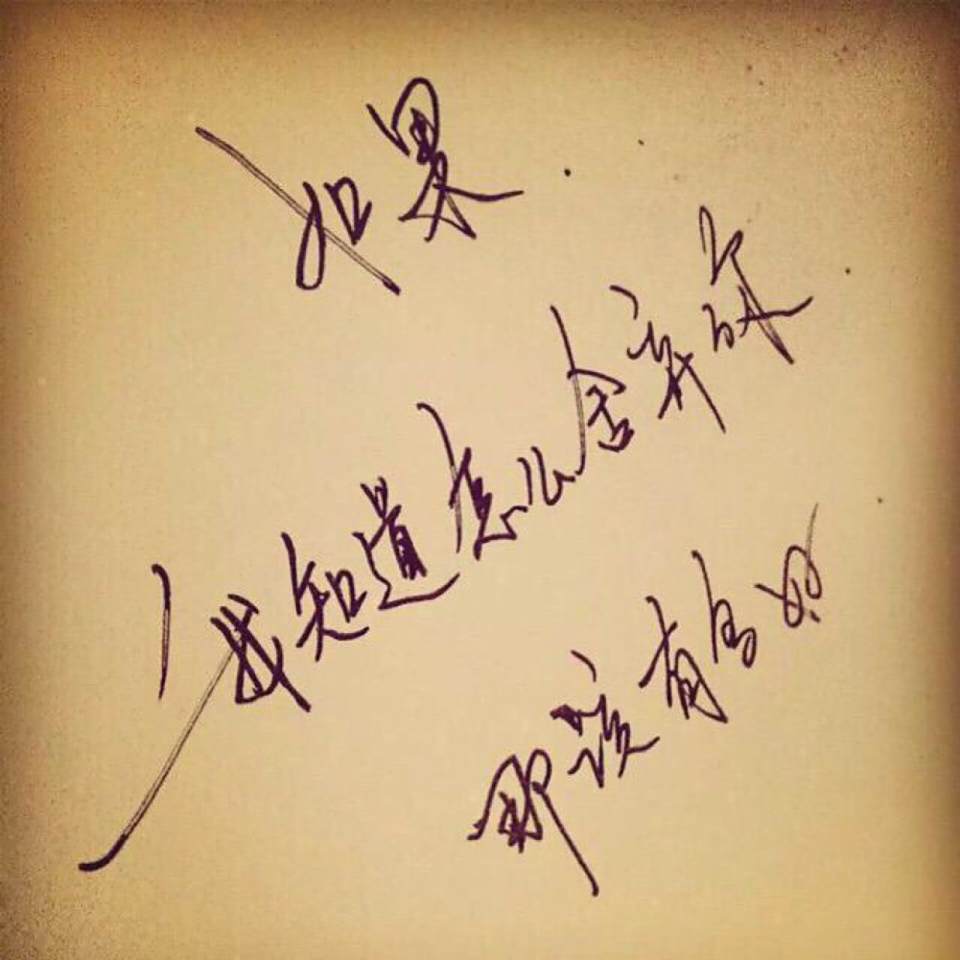 如果
我知道怎么舍弃
那该有多好